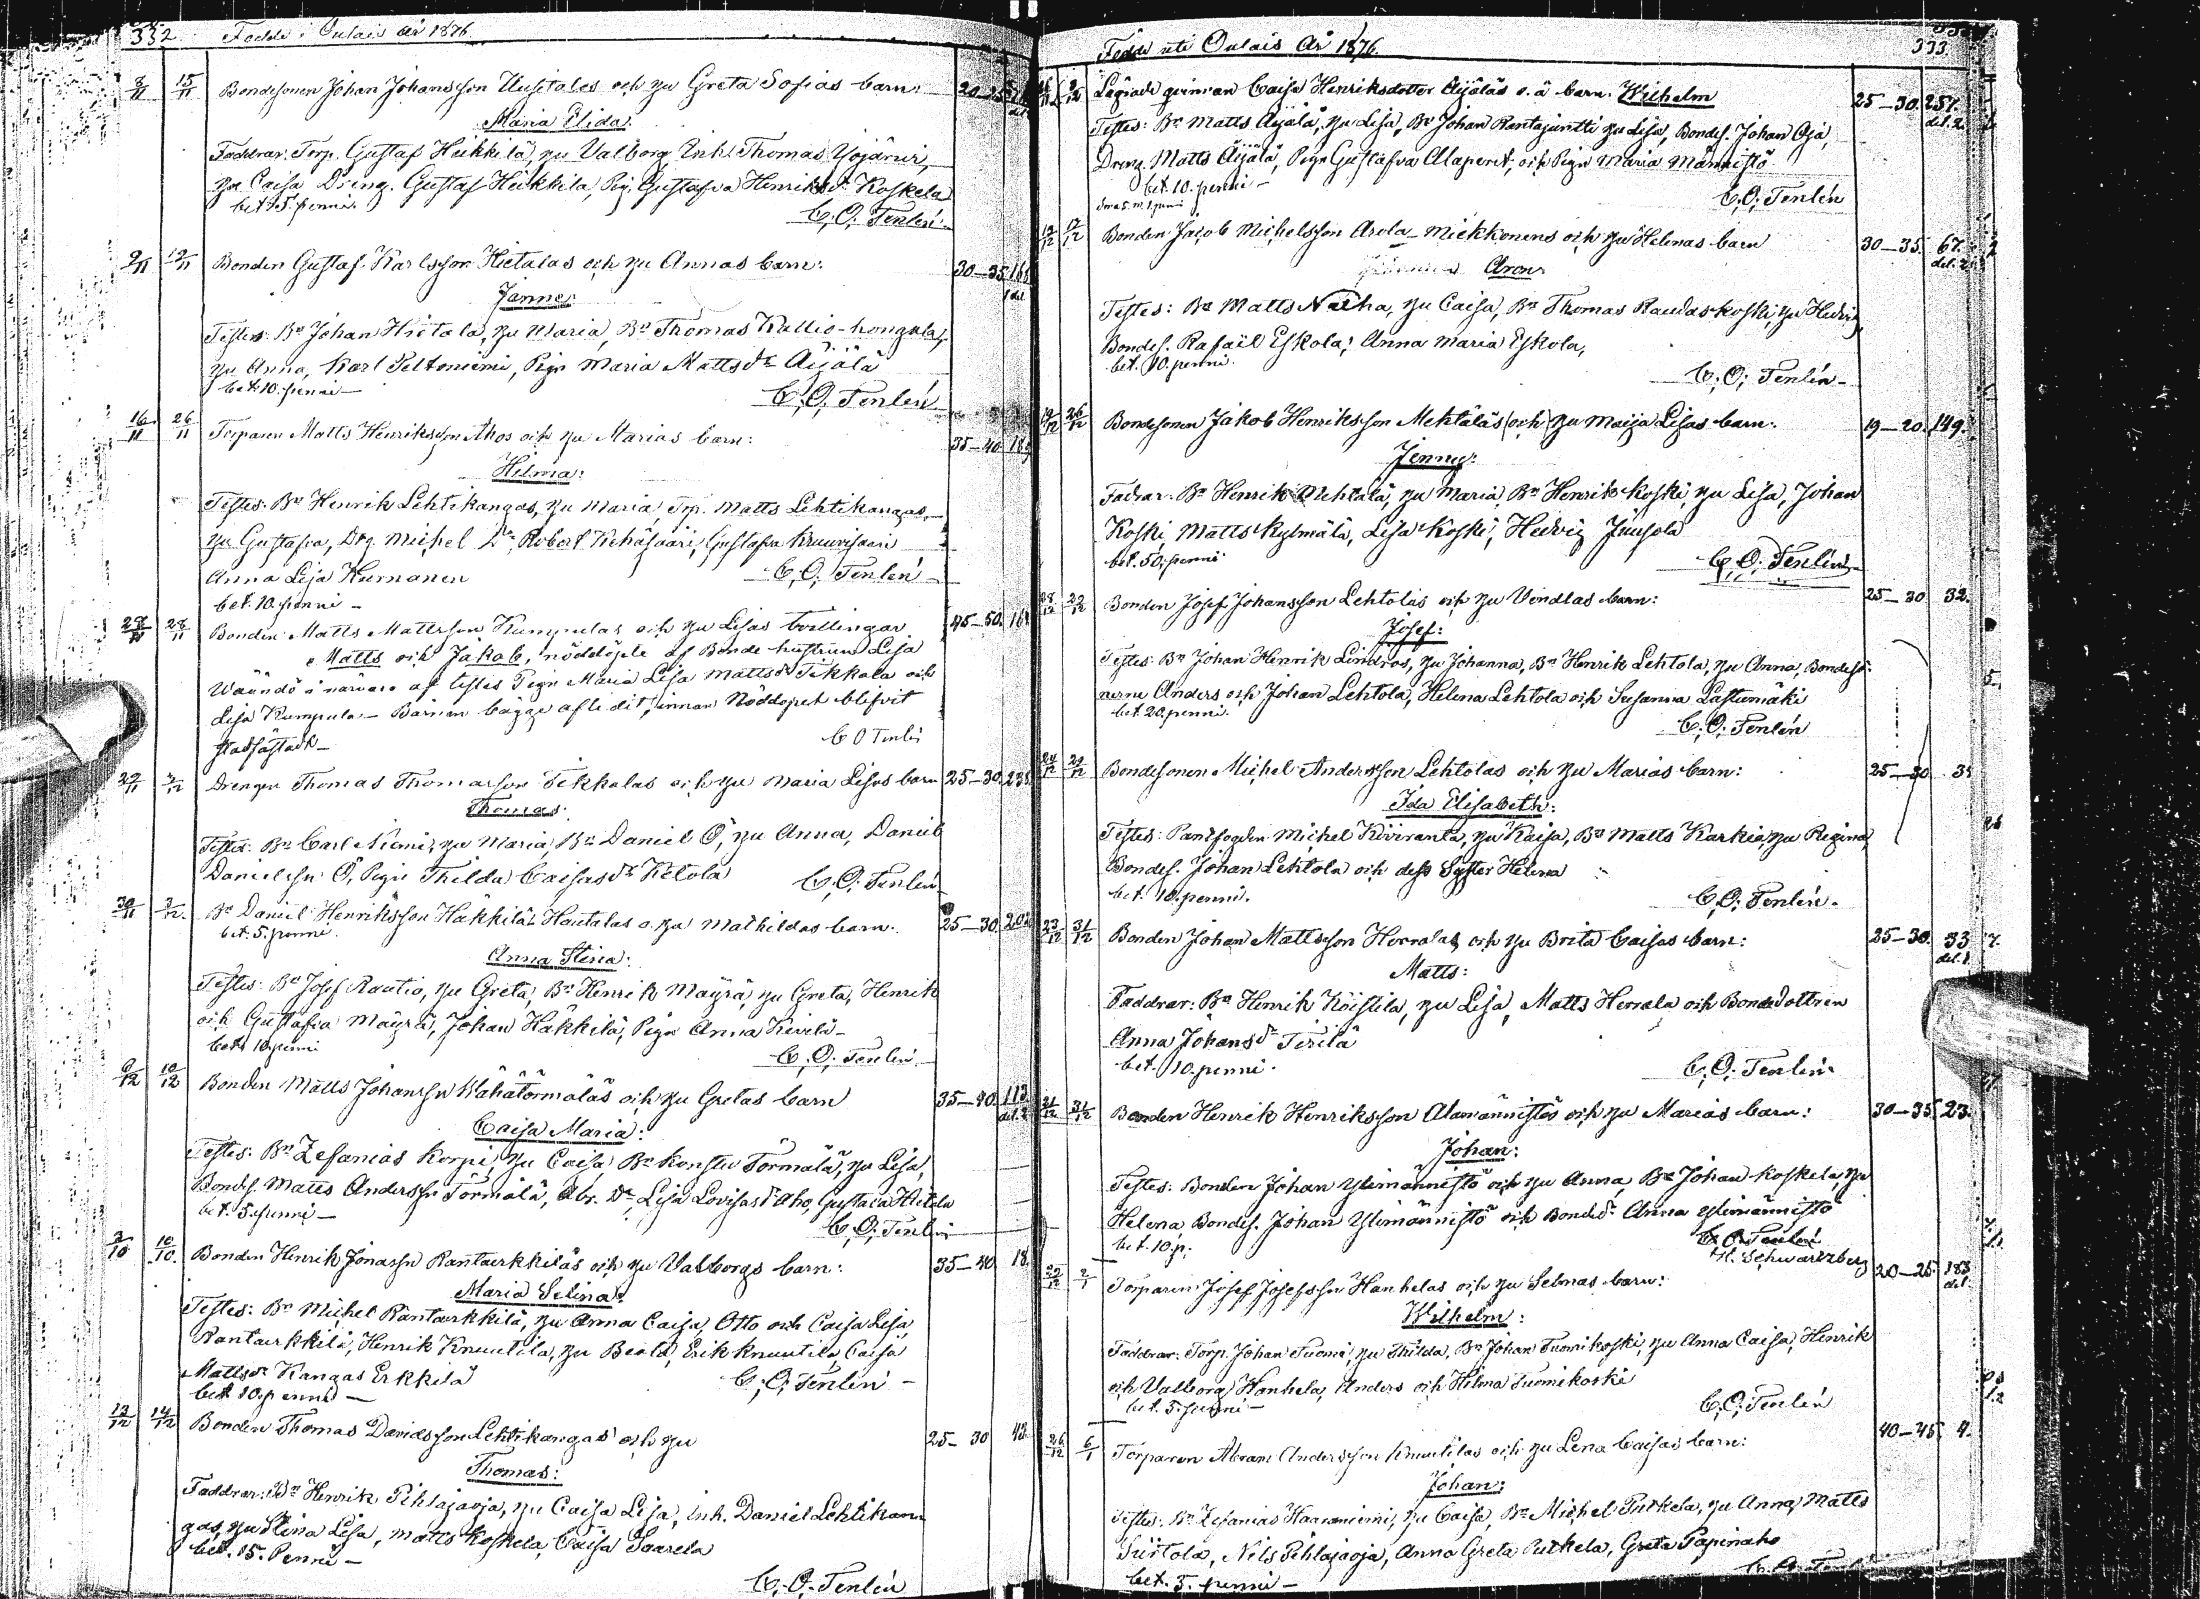 332. Födde i Oulais år 1876.
8/11 15/11 Bondesonen Johan Johansson Uusitalos och hu Greta Sofias barn: 20-25
Maria Elida:
Faddrar: Torp. Gustaf Heikkilä, hu Valborg, Inh. Thomas Yojärvi,
hu Caisa, Dreng. Gustaf Heikkilä, Pig. Gustafva Henriksdr Koskela
bet. 15. penni. C. O. Tenlén.
9/11 12/11 Bonden Gustaf Karlsson Hietalas och hu Annas barn: 30-35
Janne:
Testes: Bn Johan Hietala, hu Maria, Bn Thomas Kallio-hongala,
hu Anna, Karl Peltoniemi, Pign Maria Mattsdr Äijälä
bet. 10. penni - C. O. Tenlén
16/11 26/11 Torparen Matts Henriksson Ahos och hu Marias barn: 35-40
Hilma:
Testes: Bn Henrik Lehtikangas, hu Maria, Trp. Matts Lehtikangas,
hu Gustafva, Drg Michel Dn, Robert Kehäsaari, Gustafva Kruunisaari
Anna Lisa Kurnanen C. O. Tenlén
bet. 10. penni -
28/11 Bonden Matts Mattsson Kumpulas och hu Lisas tvillingar 45-50
Matts och Jakob, nöddöpte af Bonde hustrun Lisa
Määndö i närvaro af testes Pign Maria Lisa Mattsdr Tikkala och
Lisa Kumpula - Barnen bägge aflidit, innan Nöddopet blifvit
stadfästadt - C O Tenlén
27/11 3/12 Drengen Thomas Thomasson Tikkalas och hu Maria Lisas barn 25-30
Thomas:
Testes: Bn Carl Niemi, hu Maria, Bn Daniel Ö, hu Anna, Daniel
Danielsson Ö, Pign Thilda Caisasdr Ketola C. O. Tenlén
30/11 3/12 Bn Daniel Henriksson Häkkilä Hautalas o. hu Mathildas barn. 25-30
bet. 5. penni.
Anna Stina:
Testes: Bn Josef Rautio, hu Greta, Bn Henrik Mäyrä, hu Greta, Henrik
och Gustafva Mäyrä, Johan Häkkilä, Pign Anna Kivelä -
bet. 10. penni C. O. Tenlén
9/12 10/12 Bonden Matts Johansson Wähätörmäläs och hu Gretas barn 35-40 113
Caisa Maria:
Testes: Bn Zefanias Korpi, hu Caisa Bn Konstu Törmälä, hu Lisa,
Bondes. Matts Andersson Törmälä, Abr. Dn, Lisa Lovisasdr Aho, Gustava Hietala
bet. 5. penni - C. O. Tenlén
2/10 10/10. Bonden Henrik Jonasson Rantaerkkiläs och hu Valborgs barn: 35-40 18.
Maria Selina:
Testes: Bn Michel Rantaerkkilä, hu Anna Caisa, Otto och Caisa Lisa
Rantaerkkilä, Henrik Knuutila, hu Beata, Erik Knuutila, Caisa
Mattsdr Kangas Erkkilä C. O. Tenlén -
bet. 10. penni -
13/12 14/12 Bonden Thomas Davidsson Lehtikangas och hu 25-30
Thomas:
Faddrar: Bn Henrik Pihlajaoja, hu Caisa Lisa, Inh. Daniel Lehtikan-
gas, hu Stina Lisa, Matts Koskela, Caisa Saarela
bet. 15. Penni -
C. O. Tenlén
Födde uti Oulais År 1876. 333
Lägrade qvinnan Caisa Henriksdotter Äijäläs o. ä barn. Wilhelm 25-30. 257.
Testes: Bn Matts Äijälä, hu Lisa, Bn Johan Rantajuntti hu Lisa, Bondes. Johan Oja,
Dreng. Matts Äijälä, Pign Gustafva Alaperet, och Pign Maria Männistö
bet. 10. penni -
C. O. Tenlén
17/12 Bonden Jacob Michelsson Arola-Miekkonens och hu Helenas barn 30-35. 67.
Aron:
Testes: Bn Matts Natha, hu Caisa, Bn Thomas Raudaskoski, hu Hedvig
Bondes. Rafael Eskola, Anna Maria Eskola,
bet. 10. penni. C. O. Tenlén -
19/12 26/12 Bondesonen Jakob Henriksson Mehtäläs (och) hu Maija Lisas barn. 19-20. 149.
Jenny:
Fadrar: Bn Henrik Mehtälä, hu Maria, Bn Henrik Koski, hu Lisa, Johan
Koski, Matts Kylmälä, Lisa Koski, Hedvig Juusola
bet. 50. penni C. O. Tenlén
Bonden Josef Johansson Lehtolas och hu Vendlas barn: 25-30 32.
Josef:
Testes: Bn Johan Henrik Lindros, hu Johanna, Bn Henrik Lehtola, hu Anna, Bondesö-
nerne Anders och Johan Lehtola, Helena Lehtola och Susanna Lastumäki
bet. 20. penni. C. O. Tenlén
Bondesonen Michel Andersson Lehtolas och hu Marias barn: 25-30
Ida Elisabeth:
Testes: Pantfogden Michel Kiviranta, hu Kaisa, Bn Matts Karkia, hu Regina
Bondes. Johan Lehtola och dess Syster Helena
bet. 10. penni. C. O. Tenlén.
23/12 31/12 Bonden Johan Mattsson Herralas och hu Brita Caisas barn: 25-30. 33
Matts:
Faddrar: Bn Henrik Köistila, hu Lisa, Matts Herrala och Bondedottren
Anna Johansdr Terilä
bet. 10. penni. C. O. Tenlén
21/12 31/12 Bonden Henrik Henriksson Alamännistös och hu Marias barn: 30-35 23.
Johan:
Testes: Bonden Johan Ylimännistö och hu Anna, Bn Johan Koskela, hu
Helena, Bondes. Johan Ylimännistö och Bonded. Anna Ylimännistö
bet. 10. p. C. O. Tenlén
H. Schwartzberg
2/1 Torparen Josef Josefsson Hanhelas och hu Selmas barn: 20-25 183
Wilhelm:
Faddrar: Torp. Johan Tuomi, hu Thilda, Bn Johan Tuomikoski, hu Anna Caisa, Henrik
och Valborg Hanhela, Anders och Hilma Tuomikoski
bet. 5. penni - C. O. Tenlén
26/12 6/1 Torparen Abram Andersson Knuutilas och hu Lena Caisas barn: 40-45 4.
Johan:
Testes: Bn Zefanias Haaraniemi, hu Caisa, Bn Michel Putkela, hu Anna, Matts
Siirtola, Nils Pihlajaoja, Anna Greta Putkela, Greta Papinaho
bet. 5. penni -